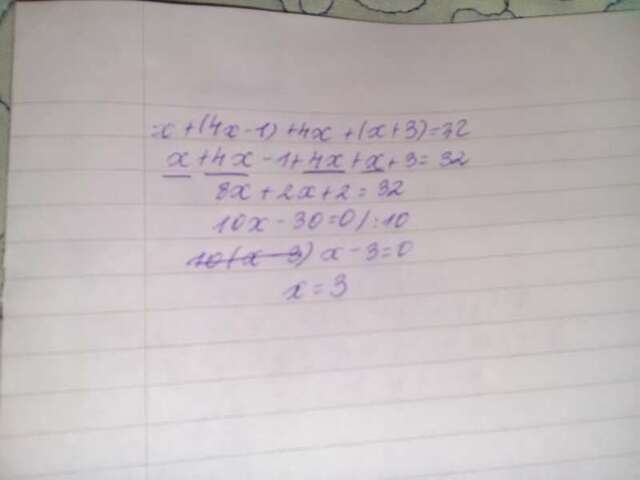 x+(4x-1)+4x+(x+3)=32
x+4x-1+4x+x+3=32
8x+2x+2=32
10x-30=0/:10
10(x-3) x-3=0
x=3